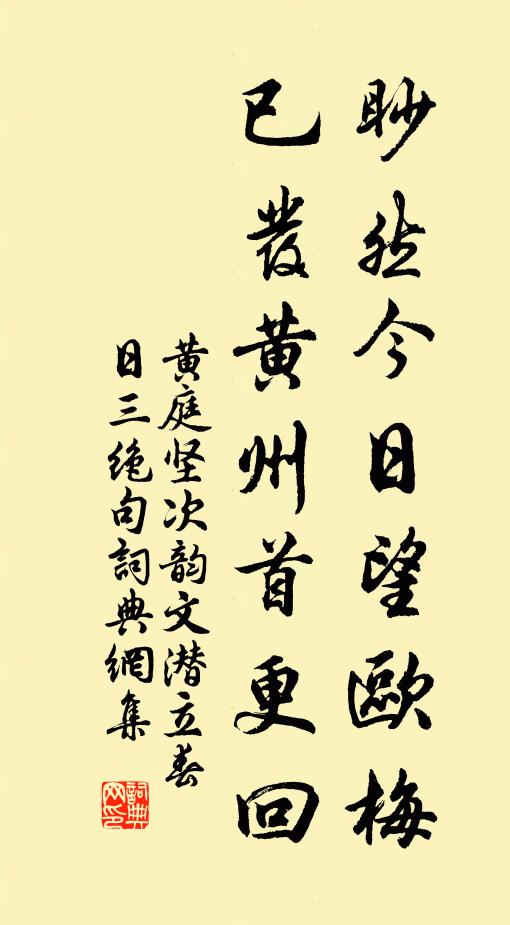 眇然今日望歐梅
已發黄州首更回
黄庭坚次韵文潜立春
日三绝句詞典網集
詞典网印